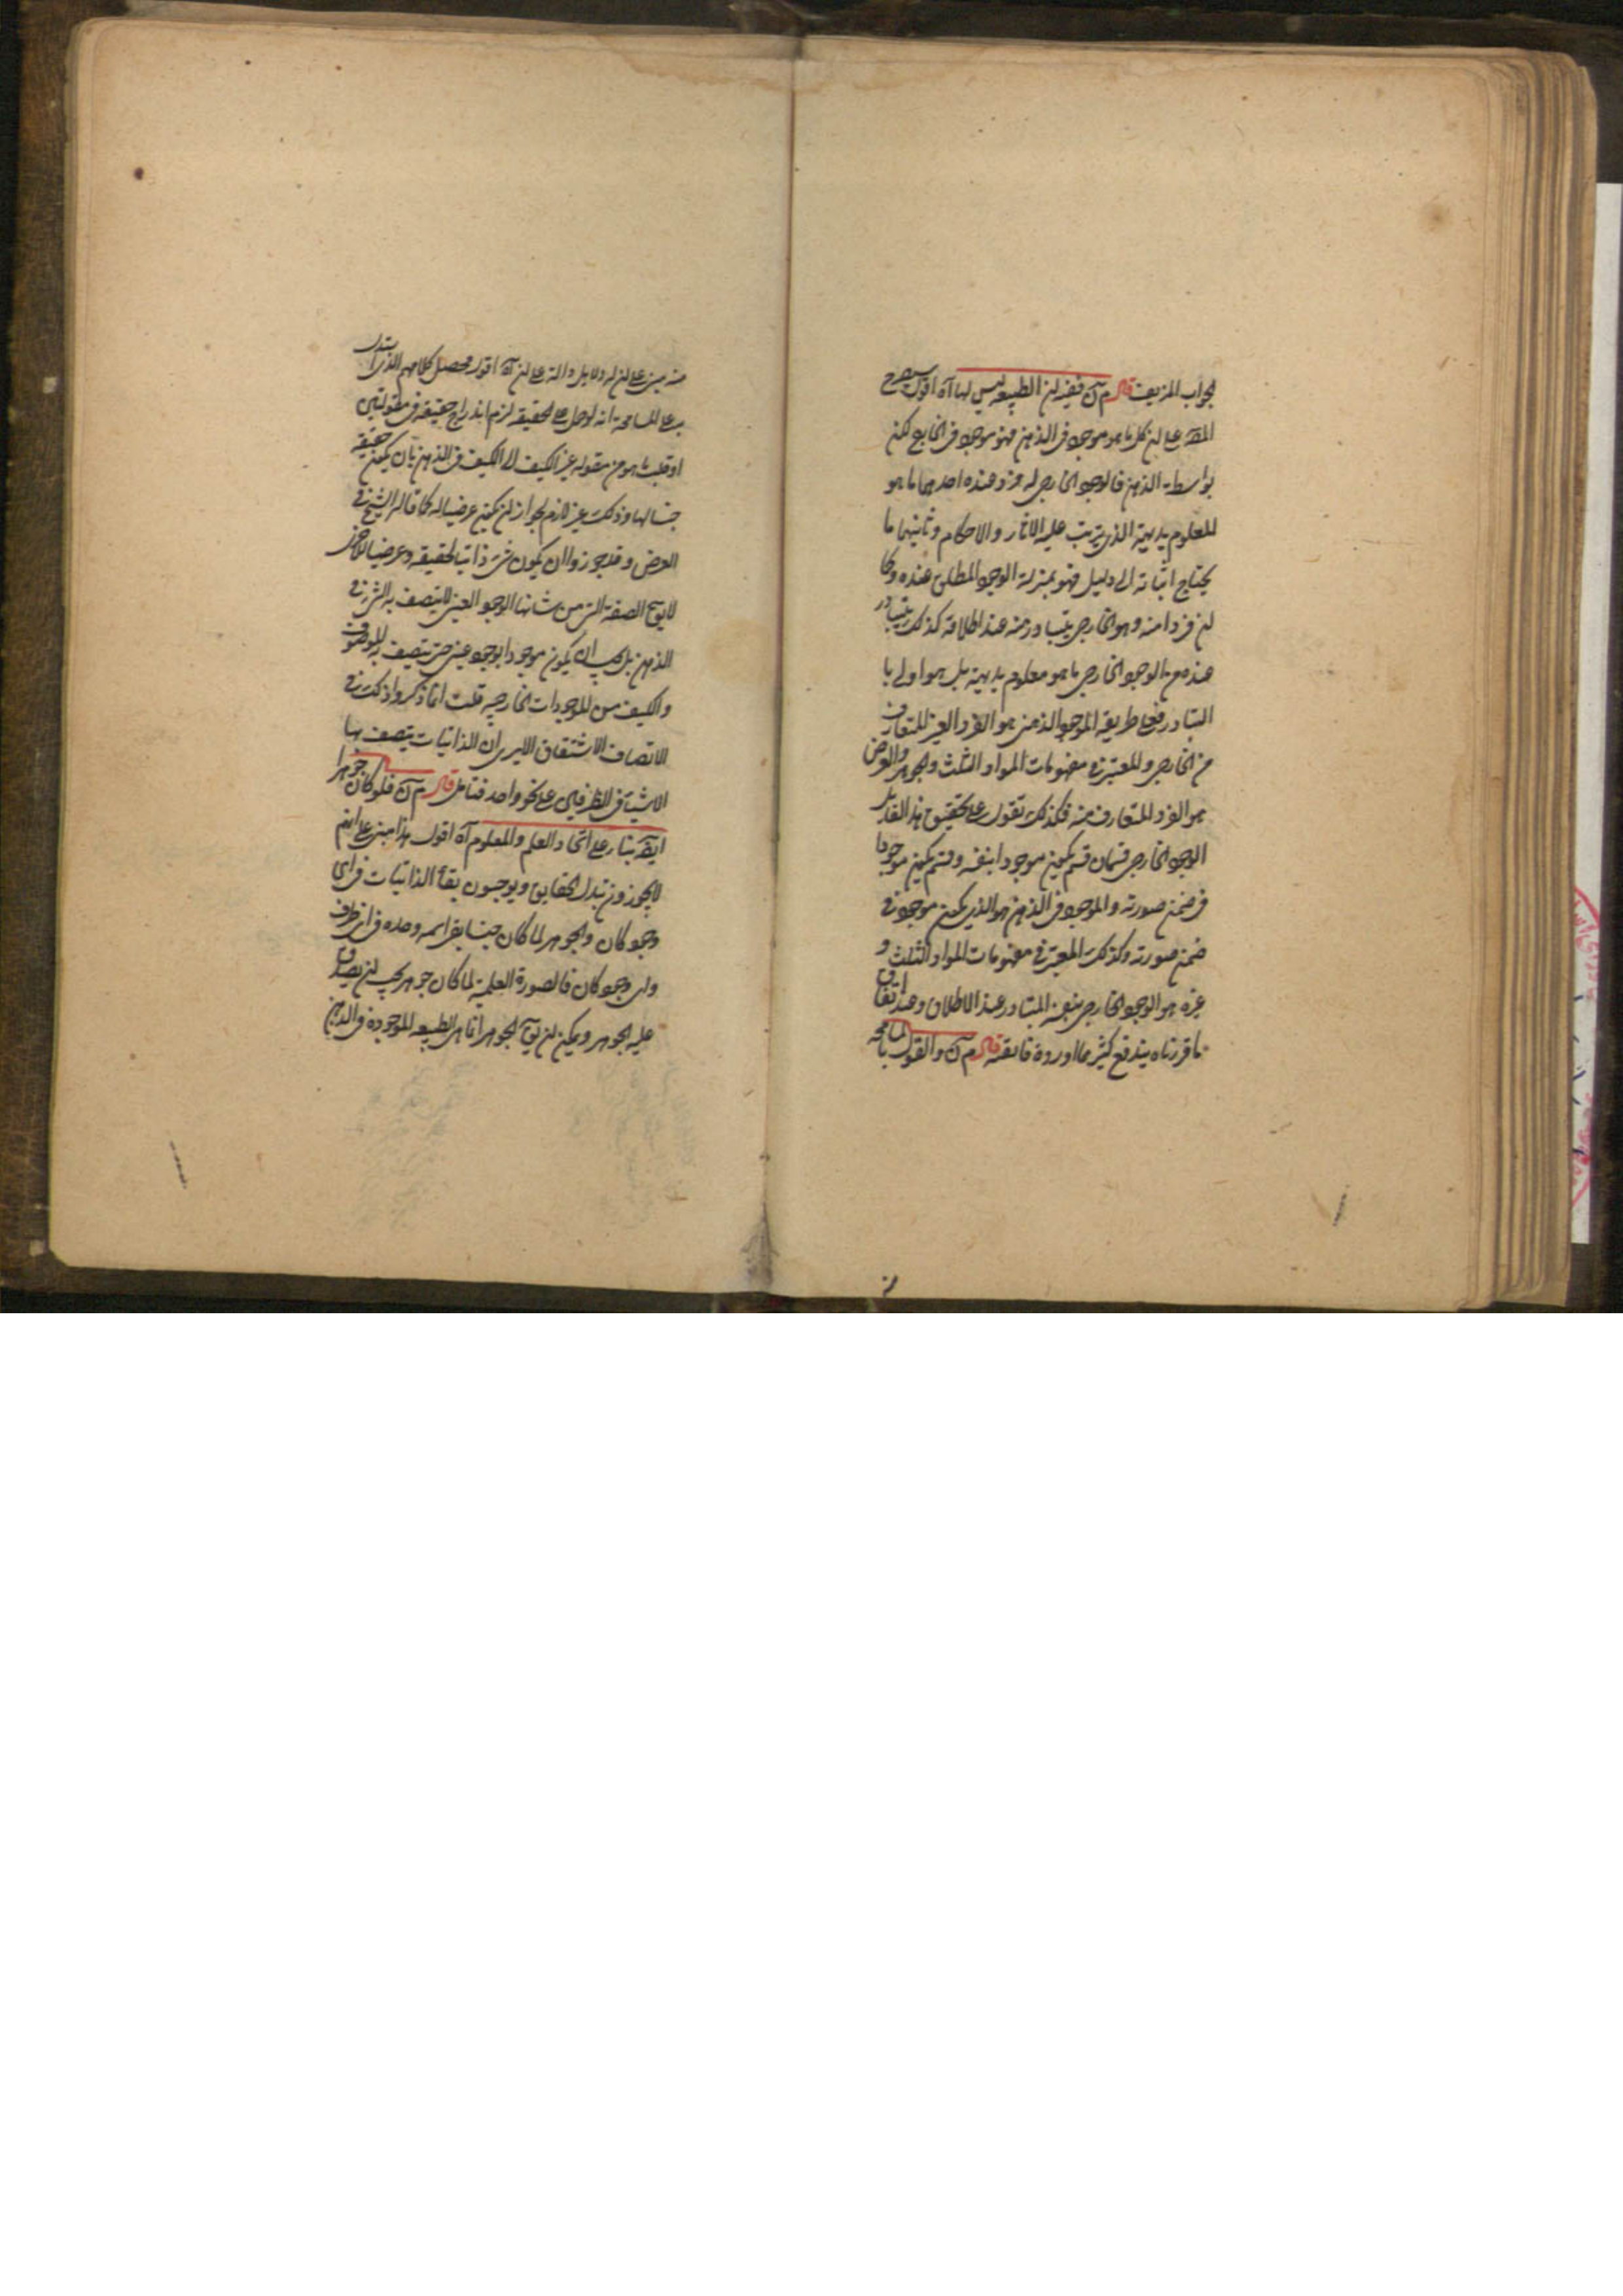 لجواب المزيف قال م ن فيفيد ان الطبيعة ليس لها آه اقول سيصرح
المص على ان كل ما هو موجود في الذهن فهو موجود في الخارج لكن
بواسطة الذهن فالوجود الخارجي له فرد عنده احدهما ما هو
المعلوم بديهية الذي يترتب عليه الاثار والاحكام وثانيهما ما
يحتاج اثباته الى دليل فهو بمنزلة الوجود المطلق عنده وكما
ان فردا منه وهو الخارجي يتبادر منه عند اطلاقه كذلك يتبادر
عنده من الوجود الخارجي ما هو معلوم بديهية بل هو اولى با
لتبادر فعلى طريقة الموجود الذهني هو الفرد الغير المتعارف
من الخارجي والمعتبر في مفهومات المواد الثلث والجوهر والعرض
هو الفرد المتعارف منه فكذلك نقول على تحقيق هذا القايل
الوجود الخارجي قسمان قسم يكون موجودا بنفسه وقسم يكون موجودا
في ضمن صورته والموجود في الذهن هو الذي يكون موجودا في
ضمن صورته وكذلك المعتبر في مفهومات المواد الثلث و
غيره هو الوجود الخارجي بنفسه المتبادر عند الاطلاق وعند اتقان
ما قررناه يندفع كثير مما اورده فاتقنه قال م ن والقول بالمسامحة
منه مبني على ان له دلايل دالة على ان آه اقول محصل كلامهم الذي استدل
به على المسامحة انه لو حمل على الحقيقة لزم اندراج حقيقة في مقولتين
او قلب ما هو من مقولة غير الكيف الى الكيف في الذهن بان يكون حقيقة
جنسا لها وذلك غير لازم لجواز ان يكون عرضيا له كما قاله الشيخ في
العرض وقد جوزوا ان يكون شئ ذاتيا لحقيقة وعرضيا للاخرى
لا يق الصفة التي من شانها الوجود العيني لا يتصف به الشئ في
الذهن بل يجب ان يكون موجودا بوجود عيني حتى يتصف به الموصوف
والكيف من الموجودات الخارجية قلت انما ذكروا ذلك في
الاتصاف الاشتقاقي الا يرى ان الذاتيات يتصف بها
الاشياء في الظرفين على نحو واحد فتامل قال م ن فلو كان جوهرا
ايض بناء على اتحاد العلم والمعلوم آه اقول هذا مبني على انهم
لا يجوزون تبدل الحقايق ويوجبون بقاء الذاتيات في اي
وجود كان والجوهر لما كان جنسا بقي اسمه وحده في اي ظرف
واي وجود كان فالصورة العلمية لما كان جوهر يجب ان يصدق
عليه الجوهر ويمكن ان يق الجوهر انما هي الطبيعة الموجودة في الذهن